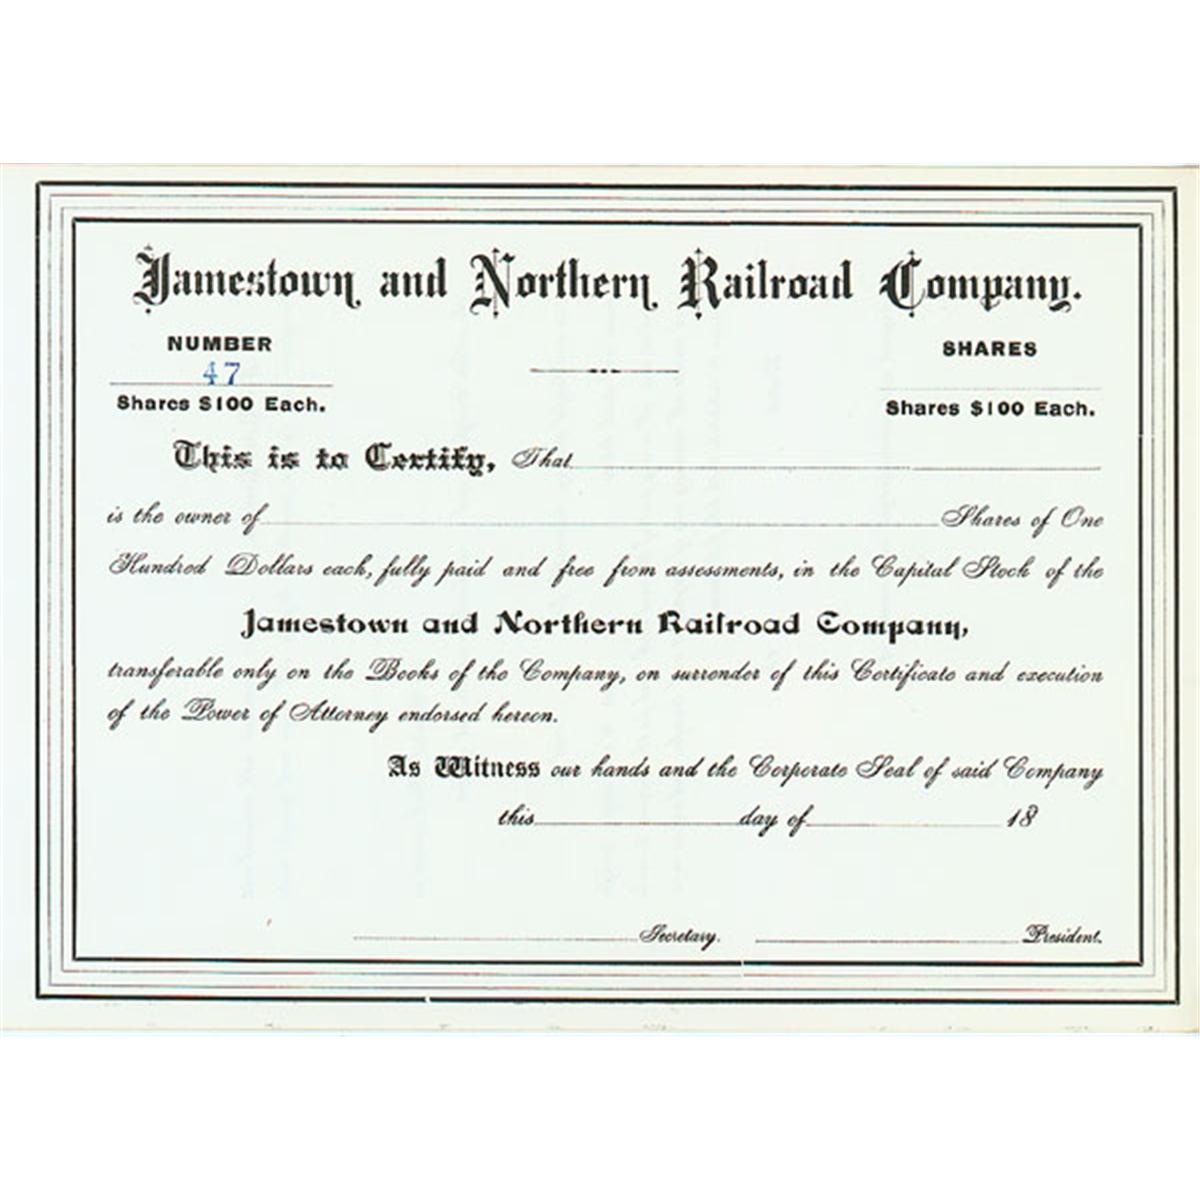 Jamestown and Northern Railroad Company.
NUMBER
47
Shares $100 Each.
SHARES
Shares $100 Each.
This is to Certify, That
is the owner of Shares of One
Hundred Dollars each, fully paid and free from assessments, in the Capital Stock of the
Jamestown and Northern Railroad Company,
transferable only on the Books of the Company, on surrender of this Certificate and execution
of the Power of Attorney endorsed hereon.
As Witness our hands and the Corporate Seal of said Company
this day of 18
Secretary. President.